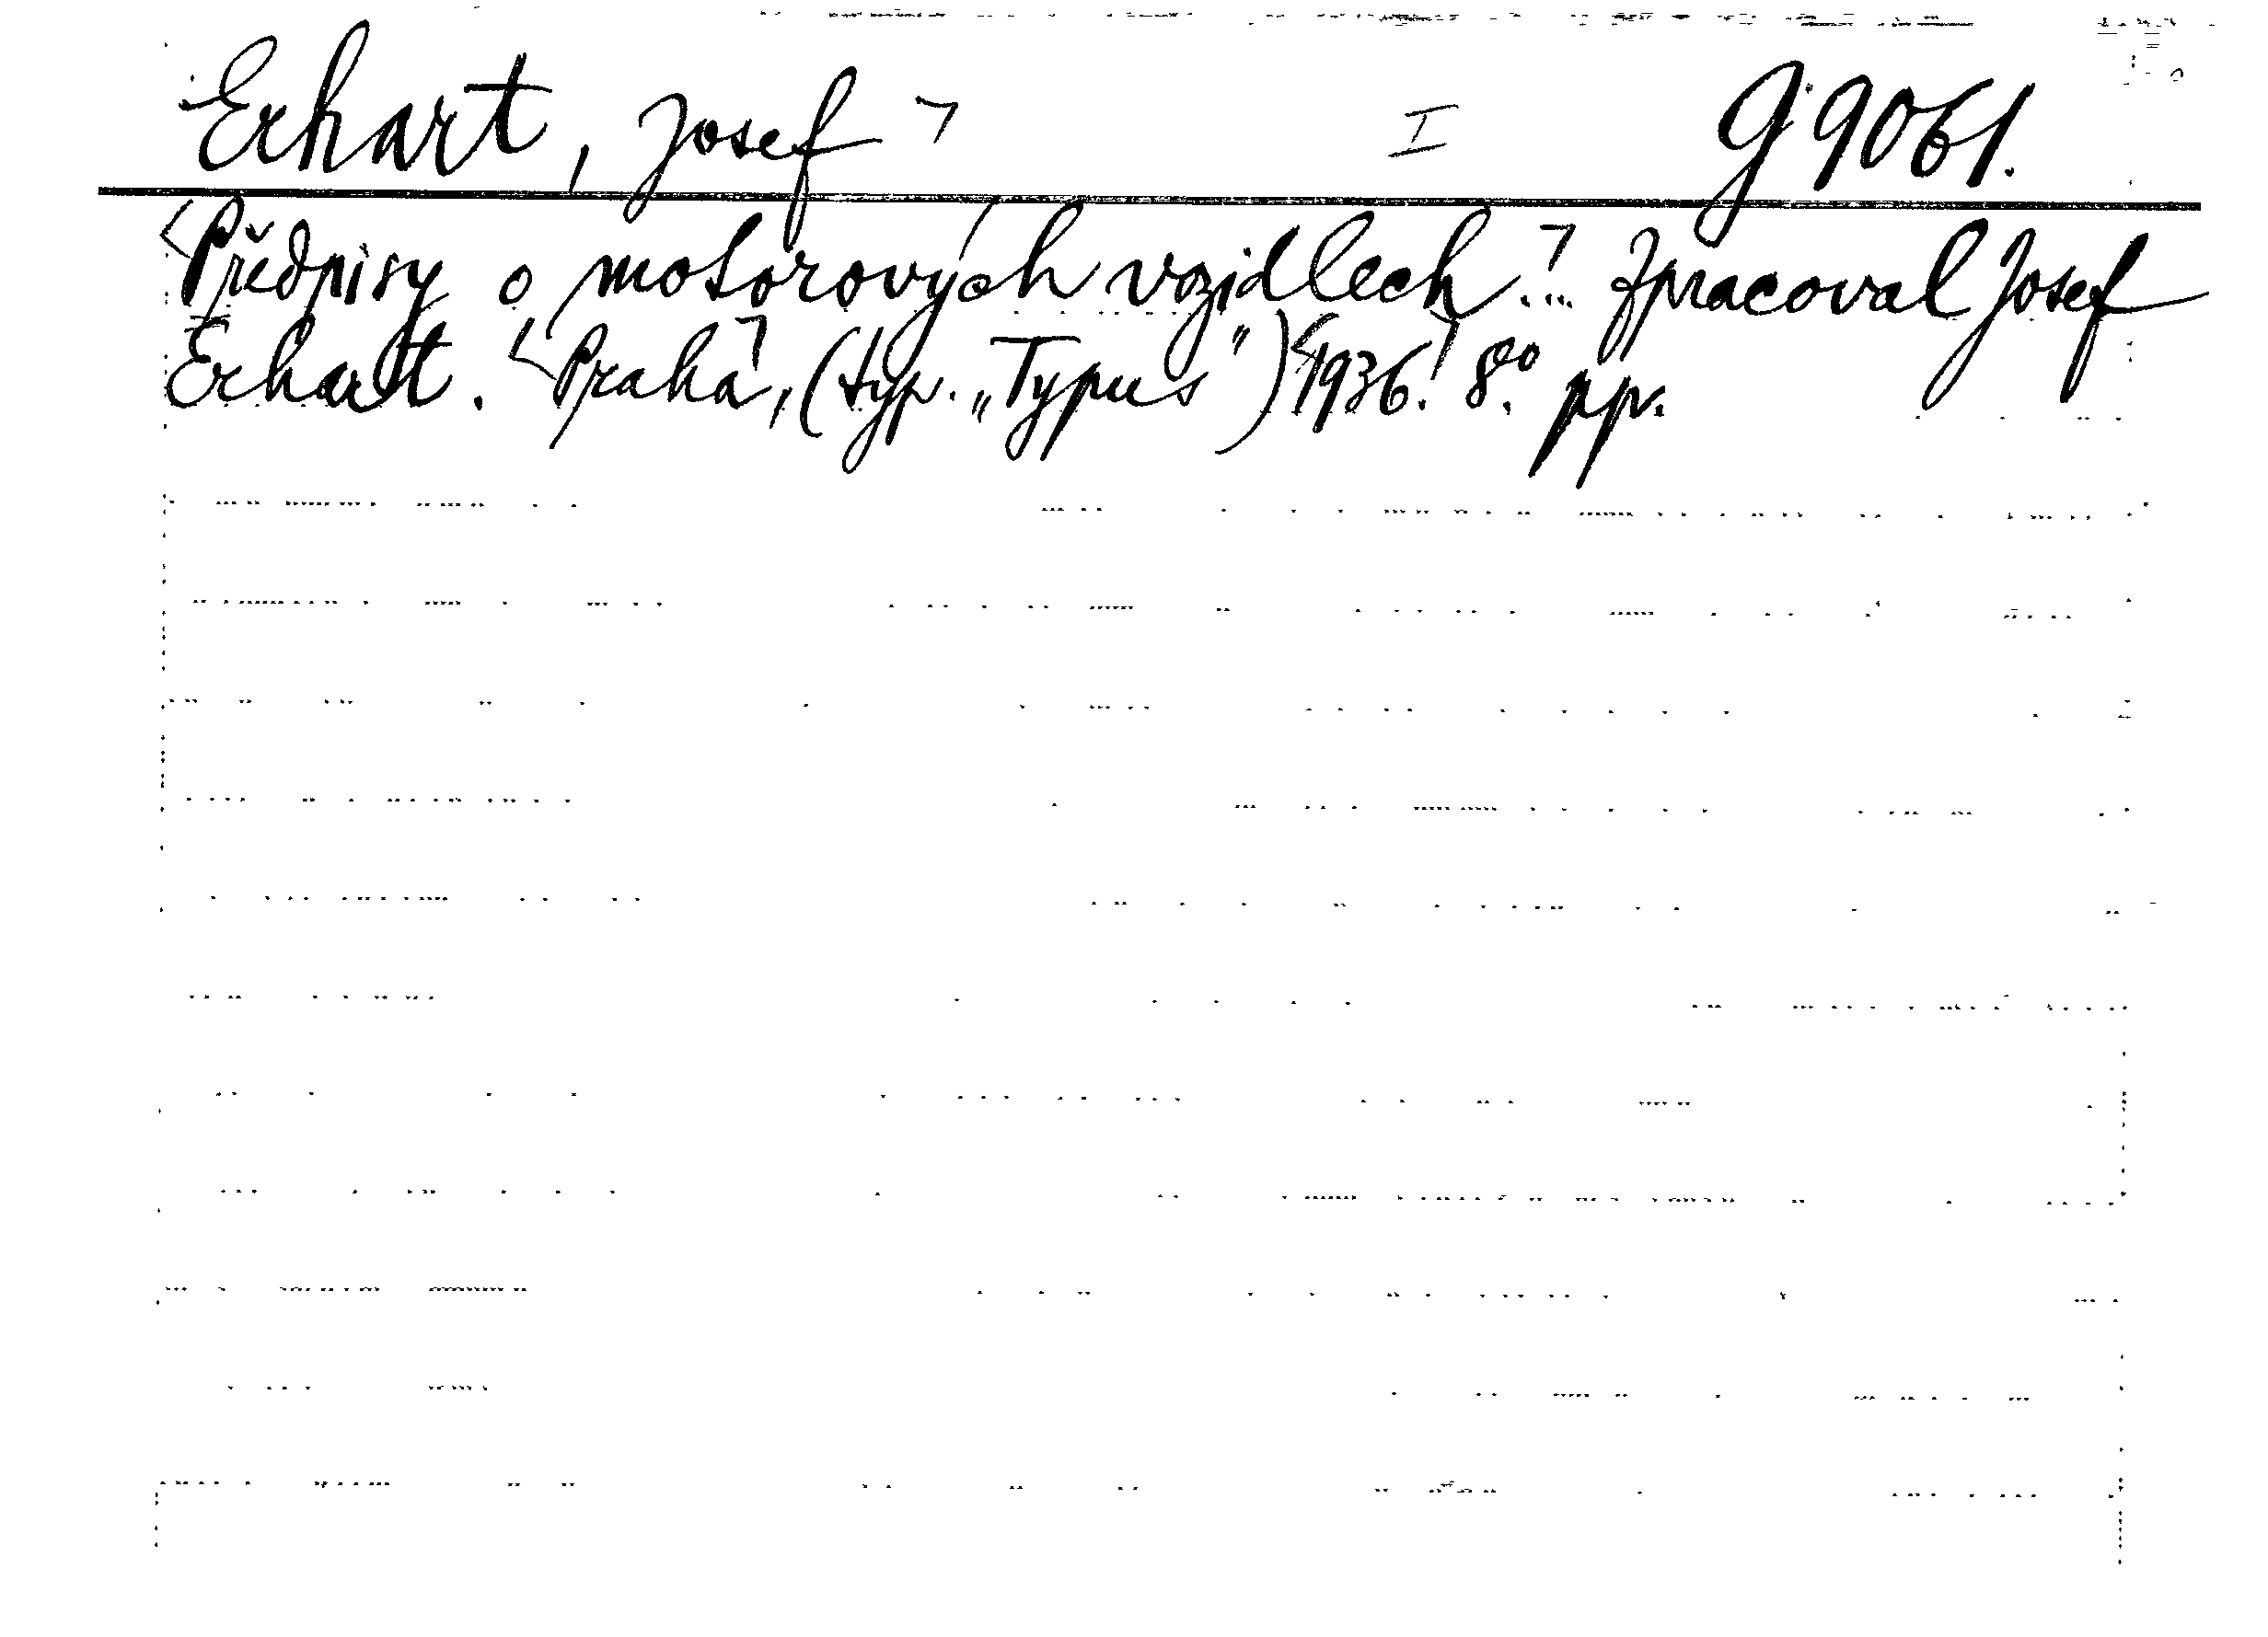 Erhart, Josef ㄱ I G 9061.
<Předpisy o motorových vozidlech.ㄱ... Zpracoval Josef
Erhart. <Prahaㄱ, (typ. „Typus") <1936.ㄱ 8.° pp.